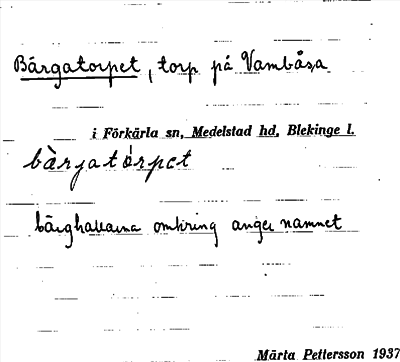 Bärgatorpet, torp på Vambåsa
i Förkärla sn, Medelstad hd, Blekinge l.
bàrgatórpet
bärghallarna omkring anger namnet
Märta Pettersson 1937